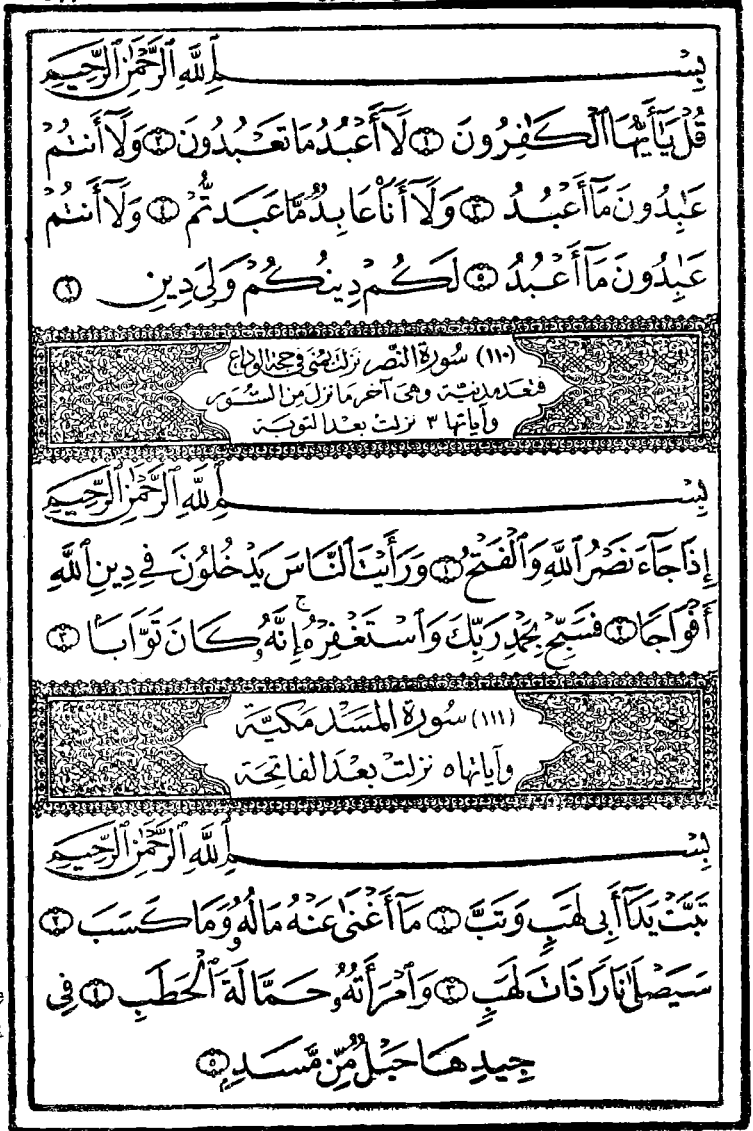 بِسْمِ ٱللَّهِ ٱلرَّحْمَٰنِ ٱلرَّحِيمِ
قُلْ يَٰٓأَيُّهَا ٱلْكَٰفِرُونَ ١ لَآ أَعْبُدُ مَا تَعْبُدُونَ ٢ وَلَآ أَنتُمْ
عَٰبِدُونَ مَآ أَعْبُدُ ٣ وَلَآ أَنَا۠ عَابِدٌ مَّا عَبَدتُّمْ ٤ وَلَآ أَنتُمْ
عَٰبِدُونَ مَآ أَعْبُدُ ٥ لَكُمْ دِينُكُمْ وَلِىَ دِينِ ٦
(١١٠) سُورَة النَّصْر نزلت بمنى في حجة الوداع
فتعد مدنية وهي آخر ما نزل من السور
وآياتها ٣ نزلت بعد التوبة
بِسْمِ ٱللَّهِ ٱلرَّحْمَٰنِ ٱلرَّحِيمِ
إِذَا جَآءَ نَصْرُ ٱللَّهِ وَٱلْفَتْحُ ١ وَرَأَيْتَ ٱلنَّاسَ يَدْخُلُونَ فِى دِينِ ٱللَّهِ
أَفْوَاجًا ٢ فَسَبِّحْ بِحَمْدِ رَبِّكَ وَٱسْتَغْفِرْهُ ۚ إِنَّهُۥ كَانَ تَوَّابًۢا ٣
(١١١) سُورَة المَسَد مَكيَّة
وآياتها ٥ نزلت بعد الفاتحة
بِسْمِ ٱللَّهِ ٱلرَّحْمَٰنِ ٱلرَّحِيمِ
تَبَّتْ يَدَآ أَبِى لَهَبٍ وَتَبَّ ١ مَآ أَغْنَىٰ عَنْهُ مَالُهُۥ وَمَا كَسَبَ ٢
سَيَصْلَىٰ نَارًا ذَاتَ لَهَبٍ ٣ وَٱمْرَأَتُهُۥ حَمَّالَةَ ٱلْحَطَبِ ٤ فِى
جِيدِهَا حَبْلٌ مِّن مَّسَدٍۭ ٥